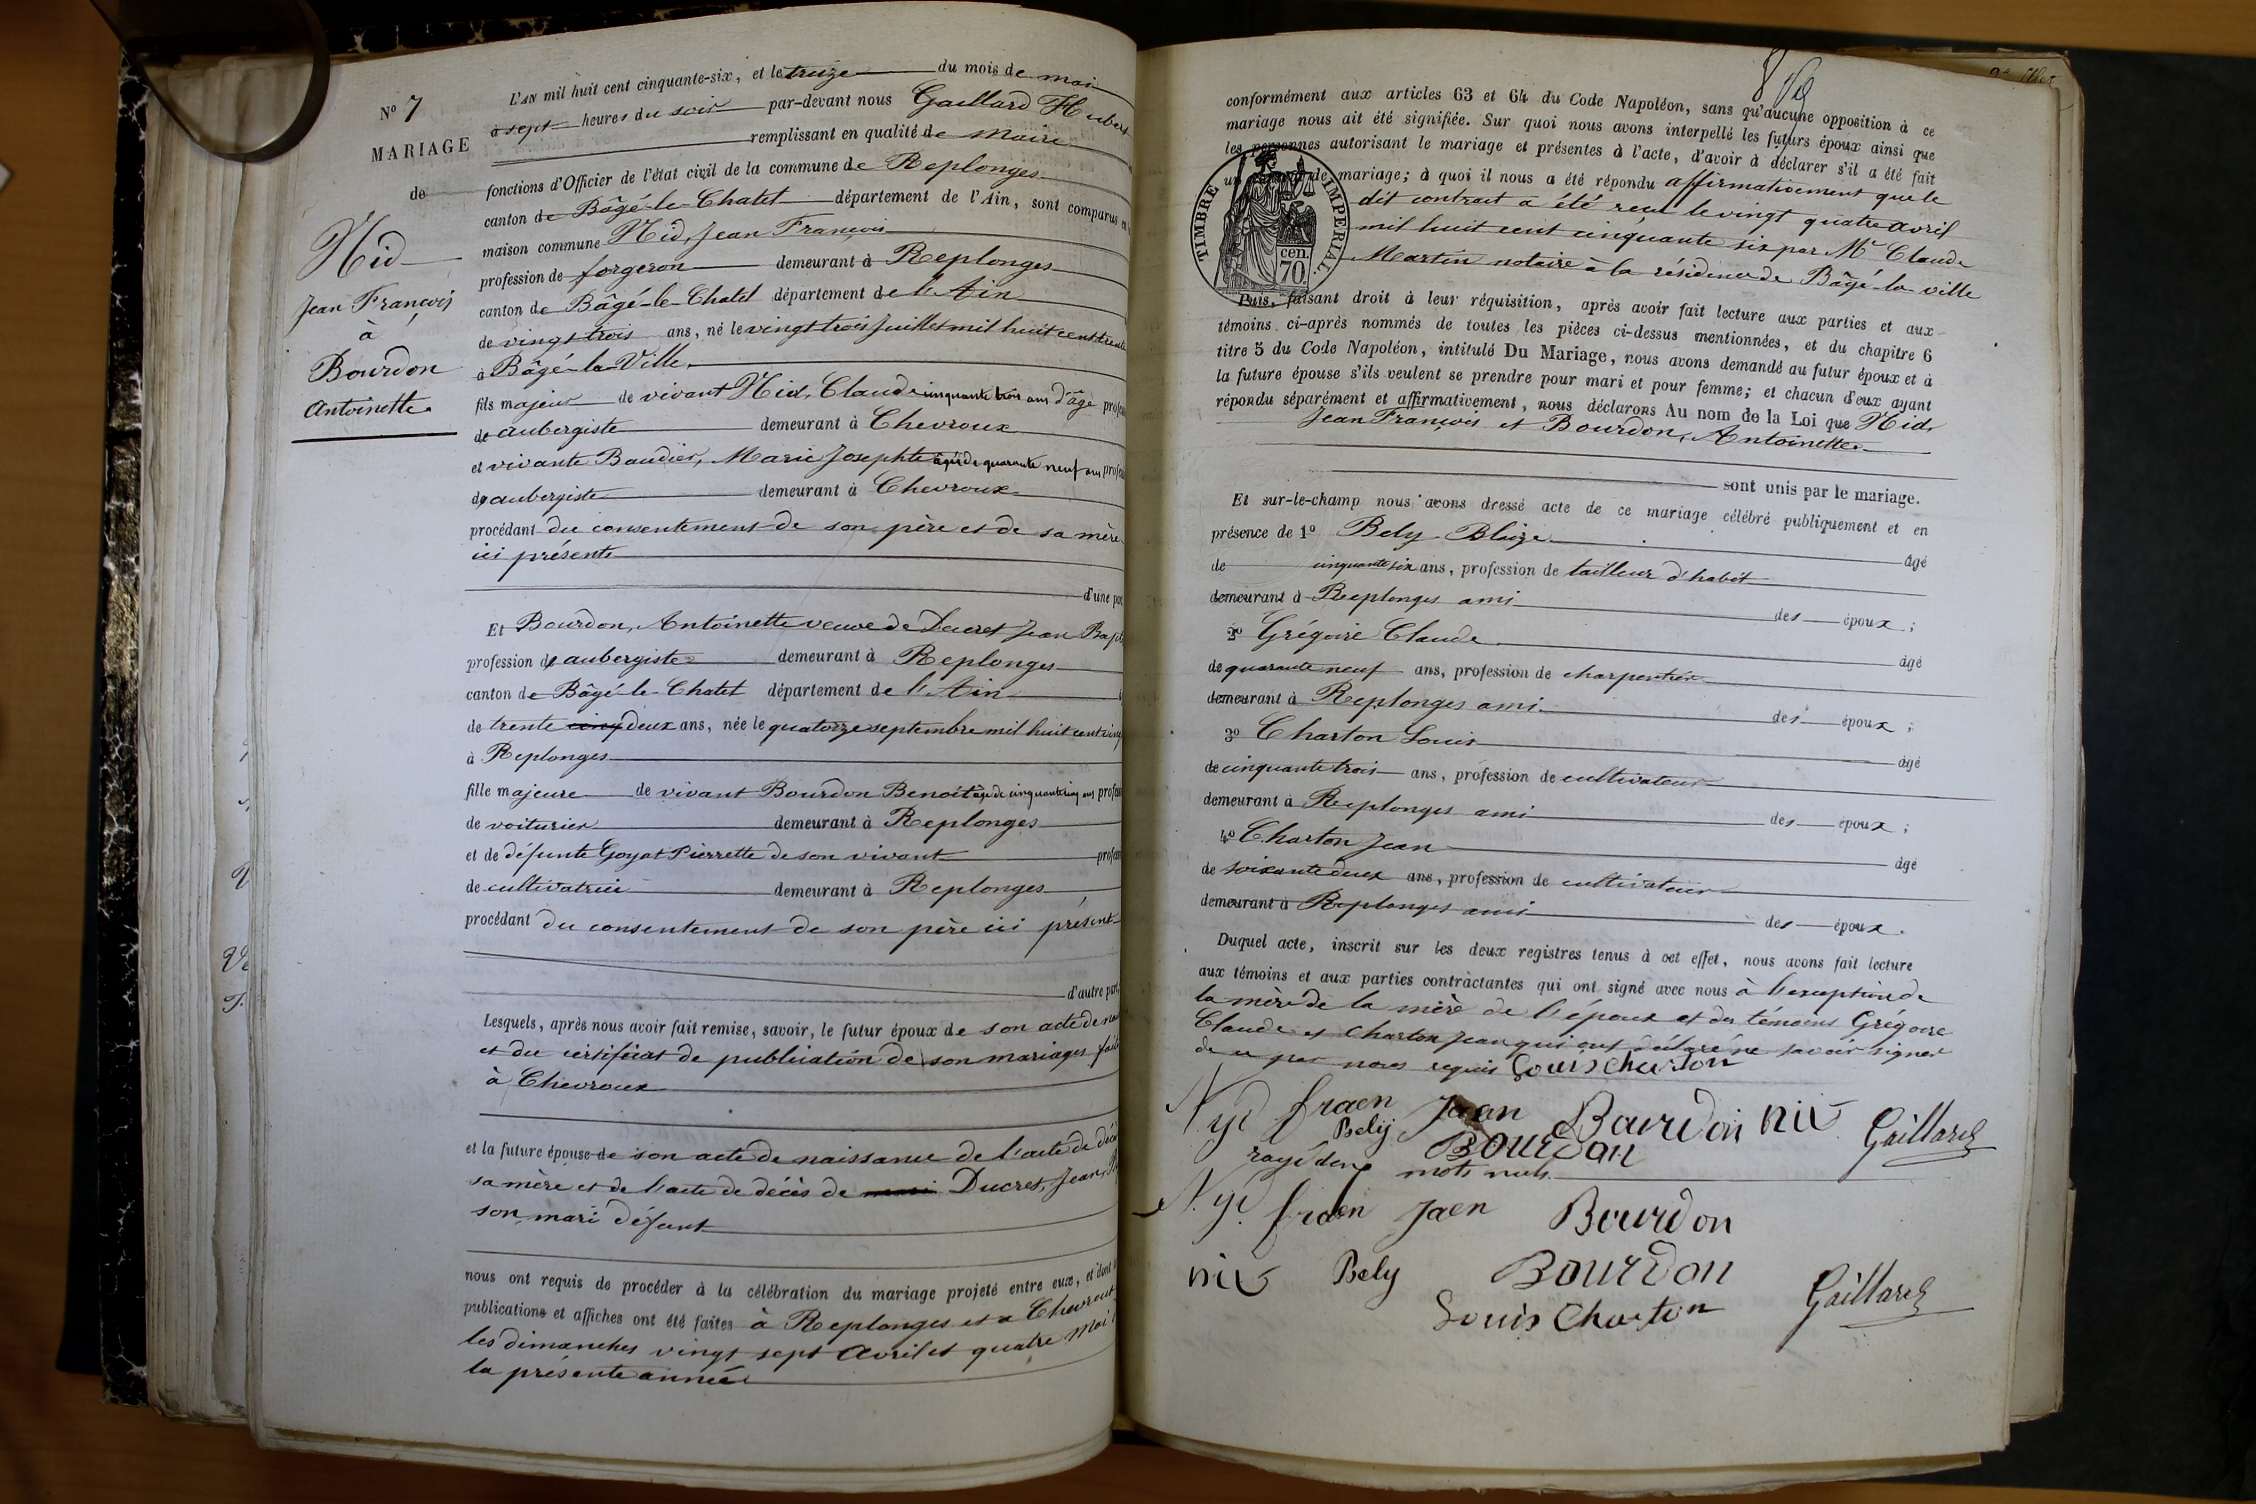 N° 7
MARIAGE
de
Nid
Jean François
à
Bourdon
Antoinette
L'AN mil huit cent cinquante-six, et le treize du mois de mai
à sept heures du soir par-devant nous Gaillard Hubert
remplissant en qualité de Maire
fonctions d'Officier de l'état civil de la commune de Replonges
canton de Bâgé-le-Chatel département de l'Ain, sont comparus en
maison commune Nid, Jean François
profession de forgeron demeurant à Replonges
canton de Bâgé-le-Chatel département de l'Ain
de vingt trois ans, né le vingt trois Juillet mil huit cent trente
à Bâgé-la-Ville
fils majeur de vivant Nid, Claude cinquante trois ans d'âge profess
de aubergiste demeurant à Chevroux
et vivante Baudier, Marie Josephte âgée de quarante neuf ans profess
de aubergiste demeurant à Chevroux
procédant du consentement de son père et de sa mère
ici présents
d'une part
Et Bourdon, Antoinette veuve de Ducret Jean Bapt
profession de aubergiste demeurant à Replonges
canton de Bâgé-le-Chatel département de l'Ain
de trente cinq deux ans, née le quatorze septembre mil huit cent vingt
à Replonges
fille majeure de vivant Bourdon Benoit âgé de cinquante cinq ans profess
de voiturier demeurant à Replonges
et de défunte Goyat Pierrette de son vivant profess
de cultivatrice demeurant à Replonges
procédant du consentement de son père ici présent
d'autre part,
Lesquels, après nous avoir fait remise, savoir, le futur époux de son acte de nais
et du certificat de publication de son mariages fait
à Chevroux
et la future épouse de son acte de naissance de l'acte de décès
sa mère et de l'acte de décès de mari Ducret, Jean, B
son mari défunt
nous ont requis de procéder à la célébration du mariage projeté entre eux, et dont
publications et affiches ont été faites à Replonges et a Chevroux
les dimanches vingt sept Avril et quatre Mai
la présente année
conformément aux articles 63 et 64 du Code Napoléon, sans qu'aucune opposition à ce
mariage nous ait été signifiée. Sur quoi nous avons interpellé les futurs époux ainsi que
les personnes autorisant le mariage et présentes à l'acte, d'avoir à déclarer s'il a été fait
un de mariage; à quoi il nous a été répondu affirmativement que le
dit contrat a été recu le vingt quatre avril
mil huit cent cinquante six par Mr Claude
Martin notaire à la résidence de Bâgé-la-ville
TIMBRE IMPERIAL.
cen.
70.
Puis, faisant droit à leur réquisition, après avoir fait lecture aux parties et aux
témoins ci-après nommés de toutes les pièces ci-dessus mentionnées, et du chapitre 6
titre 5 du Code Napoléon, intitulé Du Mariage, nous avons demandé au futur époux et à
la future épouse s'ils veulent se prendre pour mari et pour femme; et chacun d'eux ayant
répondu séparément et affirmativement, nous déclarons Au nom de la Loi que Nid,
Jean François et Bourdon, Antoinette
sont unis par le mariage.
Et sur-le-champ nous avons dressé acte de ce mariage célébré publiquement et en
présence de 1° Bely Blaize âgé
de cinquante six ans, profession de tailleur d'habit
demeurant à Replonges ami des époux;
2° Grégoire Claude âgé
de quarante neuf ans, profession de charpentier
demeurant à Replonges ami des époux;
3° Charton Louis âgé
de cinquante trois ans, profession de cultivateur
demeurant à Replonges ami des époux;
4° Charton Jean âgé
de soixante deux ans, profession de cultivateur
demeurant à Replonges ami des époux.
Duquel acte, inscrit sur les deux registres tenus à cet effet, nous avons fait lecture
aux témoins et aux parties contractantes qui ont signé avec nous à l'exception de
la mère de la mère de l'époux et des témoins Grégoire
Claude et Charton Jean qui ont déclaré ne savoir signer
de ce par nous requis Louis Charton
Nyd fraen Jaen Bourdon niv Gaillard
Bely BOURDON
rayé deux mots nuls
Nyd fraen Jaen Bourdon
niv Bely BOURDON
Louis Charton Gaillard